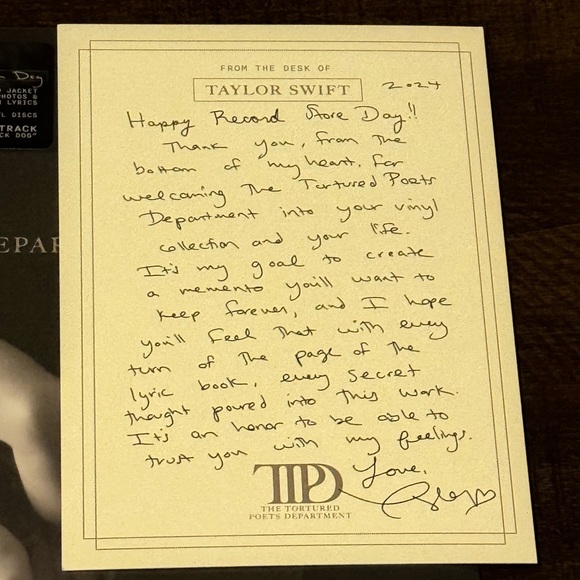 Dog
JACKET
PHOTOS &
LYRICS
DISCS
TRACK
CK DOG"
EPAR
FROM THE DESK OF
TAYLOR SWIFT
2024
Happy Record Store Day!!
Thank you, from the
bottom of my heart, for
welcoming The Tortured Poets
Department into your vinyl
collection and your life.
It's my goal to create
a memento you'll want to
keep forever, and I hope
you'll feel that with every
turn of the page of the
lyric book, every secret
thought poured into this work.
It's an honor to be able to
trust you with my feelings.
Love,
TTPD
THE TORTURED
POETS DEPARTMENT